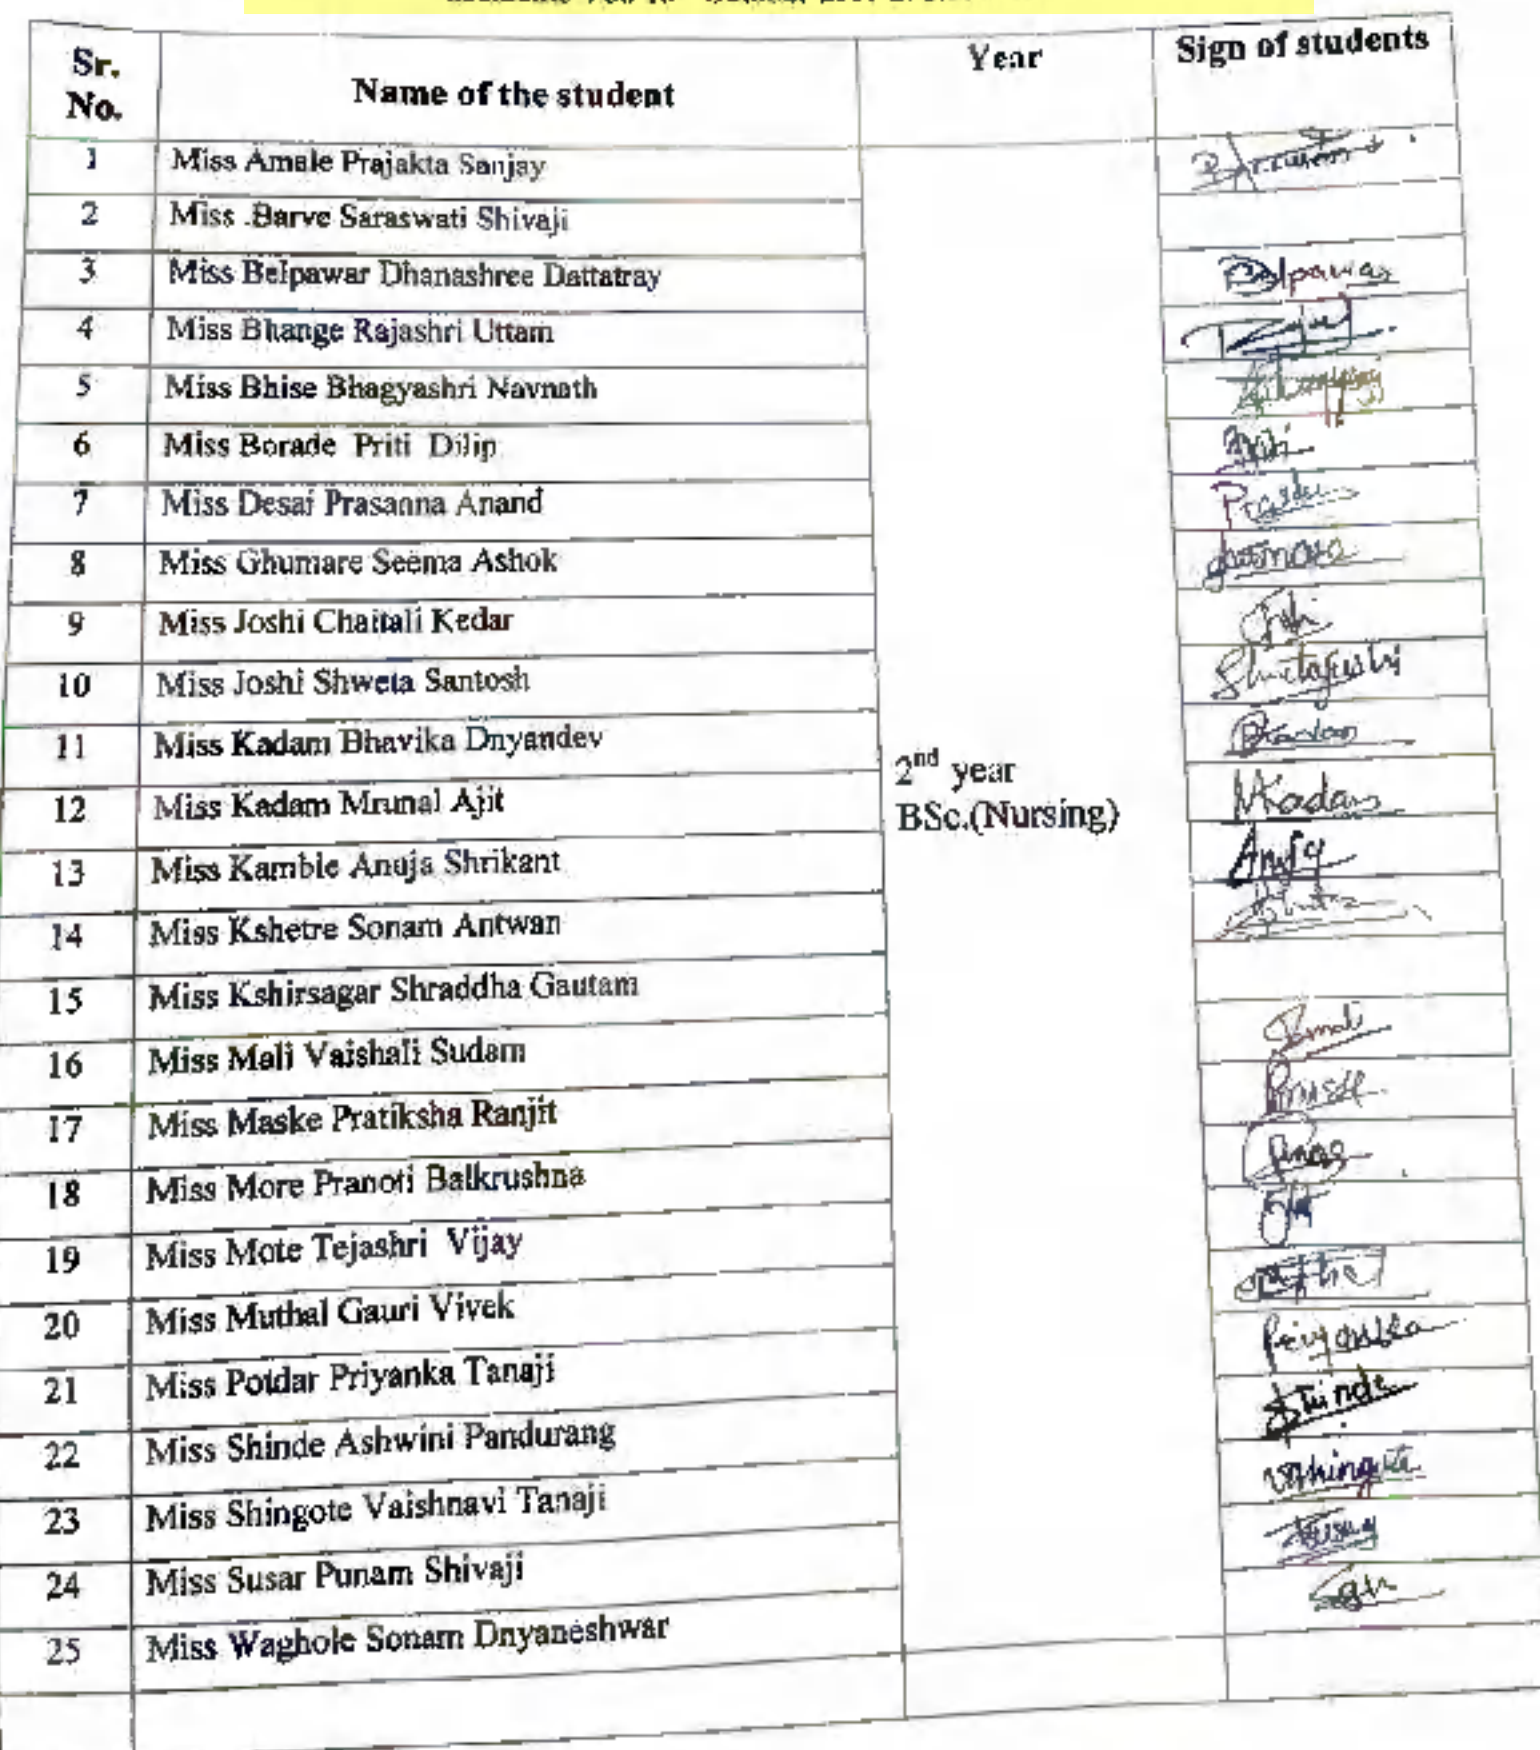 Sr. No. Name of the student Year Sign of students
1 Miss Amale Prajakta Sanjay
2 Miss .Barve Saraswati Shivaji
3 Miss Belpawar Dhanashree Dattatray Belpawar
4 Miss Bhange Rajashri Uttam
5 Miss Bhise Bhagyashri Navnath
6 Miss Borade Priti Dilip
7 Miss Desai Prasanna Anand
8 Miss Ghumare Seema Ashok
9 Miss Joshi Chaitali Kedar
10 Miss Joshi Shweta Santosh
11 Miss Kadam Bhavika Dnyandev
2nd year
12 Miss Kadam Mrunal Ajit MKadam
BSc.(Nursing)
13 Miss Kamble Anuja Shrikant Anuja
14 Miss Kshetre Sonam Antwan
15 Miss Kshirsagar Shraddha Gautam
16 Miss Mali Vaishali Sudam
17 Miss Maske Pratiksha Ranjit
18 Miss More Pranoti Balkrushna
19 Miss Mote Tejashri Vijay
20 Miss Muthal Gauri Vivek
21 Miss Potdar Priyanka Tanaji Priyanka
22 Miss Shinde Ashwini Pandurang Shinde
23 Miss Shingote Vaishnavi Tanaji VShingote
24 Miss Susar Punam Shivaji
25 Miss Waghole Sonam Dnyaneshwar